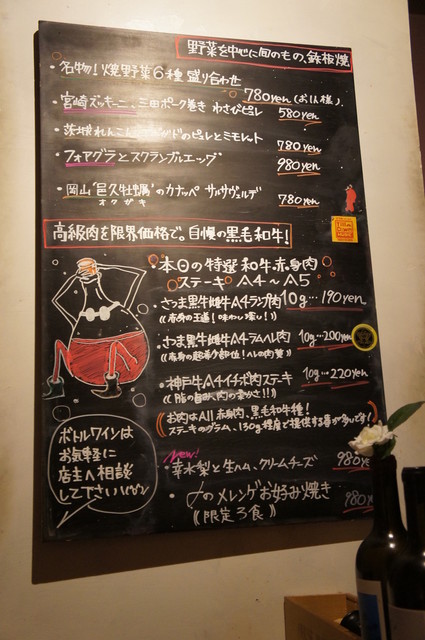 野菜を中心に旬のもの、鉄板焼
・名物!焼野菜6種盛り合わせ
780yen(お1人様)
・宮崎ズッキーニ、三田ポーク巻き わさびピレ 580yen
・茨城れんこん のピレとミモレット 780yen
・フォアグラとスクランブルエッグ 980yen
・岡山"邑久牡蠣"のカナッペ サルサヴェルデ 780yen
オクガキ
高級肉を限界価格で。自慢の黒毛和牛!
・本日の特選和牛赤身肉
ステーキ A4〜A5
・さつま黒牛雌牛A4ランプ肉 10g…190yen
((赤身の王道!味わい濃し!))
・さつま黒牛雌牛A4ラムヘレ肉 10g…200yen
・神戸牛A4イチボ肉ステーキ 10g…220yen
((脂の旨み、肉の柔かさ!!))
お肉はAll 赤身肉、黒毛和牛種!
ステーキのグラム、130g程度で提供する事が多いです!
New!
・幸水梨と生ハム、クリームチーズ 980ye
・〆のメレンゲお好み焼き 980
《限定3食》
ボトルワインは
お気軽に
店主へ相談
して下さい